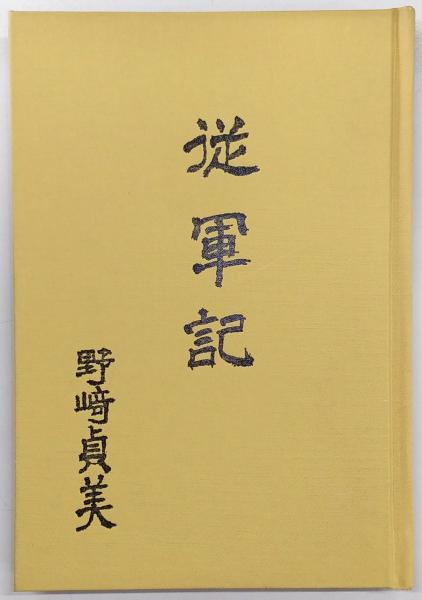 従軍記
野﨑貞美